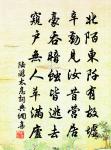 北陌東阡有故墟
辛勤見汝昔營居
豪吞暗蝕皆逃去
窺戶無人草滿廬
陸游太息詞典網書